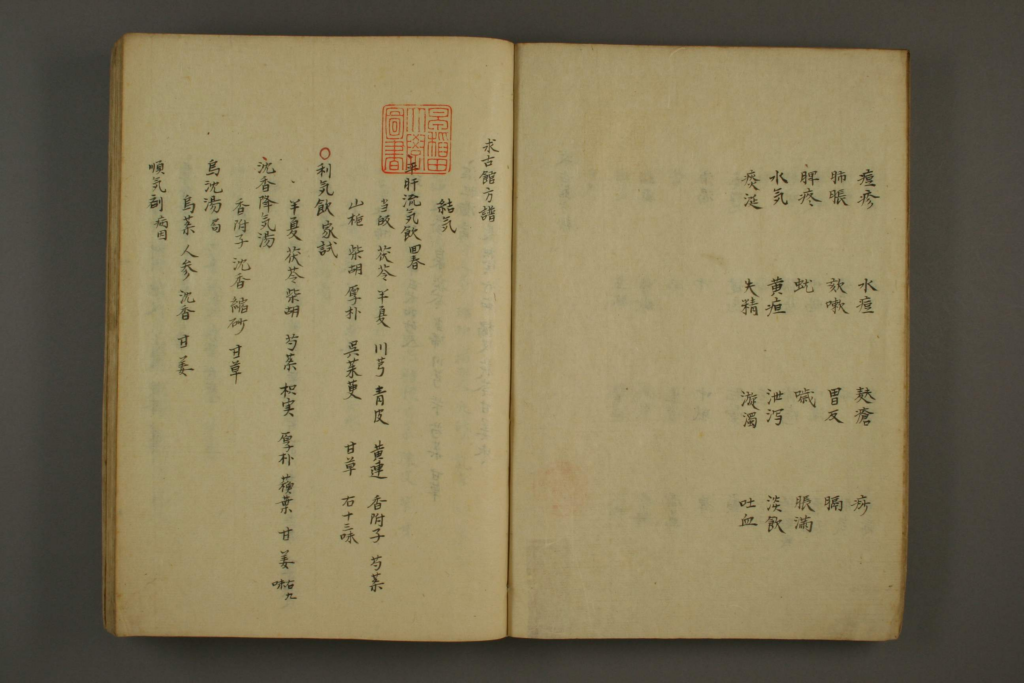 痘疹 水痘 麩瘡 疥
肺脹 欬嗽 胃反 膈
脾疼 蚘 噦 脹滿
水気 黄疸 泄泻 淡飲
痰涎 失精 漩濁 吐血
求古館方譜
早稻田大學圖書
結気
平肝流気飲 回春
当皈 茯苓 半夏 川芎 青皮 黄連 香附子 芍薬
山梔 柴胡 厚朴 呉茱萸 甘草 右十三味
○利気飲 家試
半夏 茯苓 柴胡 芍薬 枳実 厚朴 蘓葉 甘 姜 右九味
沈香降気湯
香附子 沈香 縮砂 甘草
烏沈湯 局
烏薬 人参 沈香 甘 姜
順気剤 病因